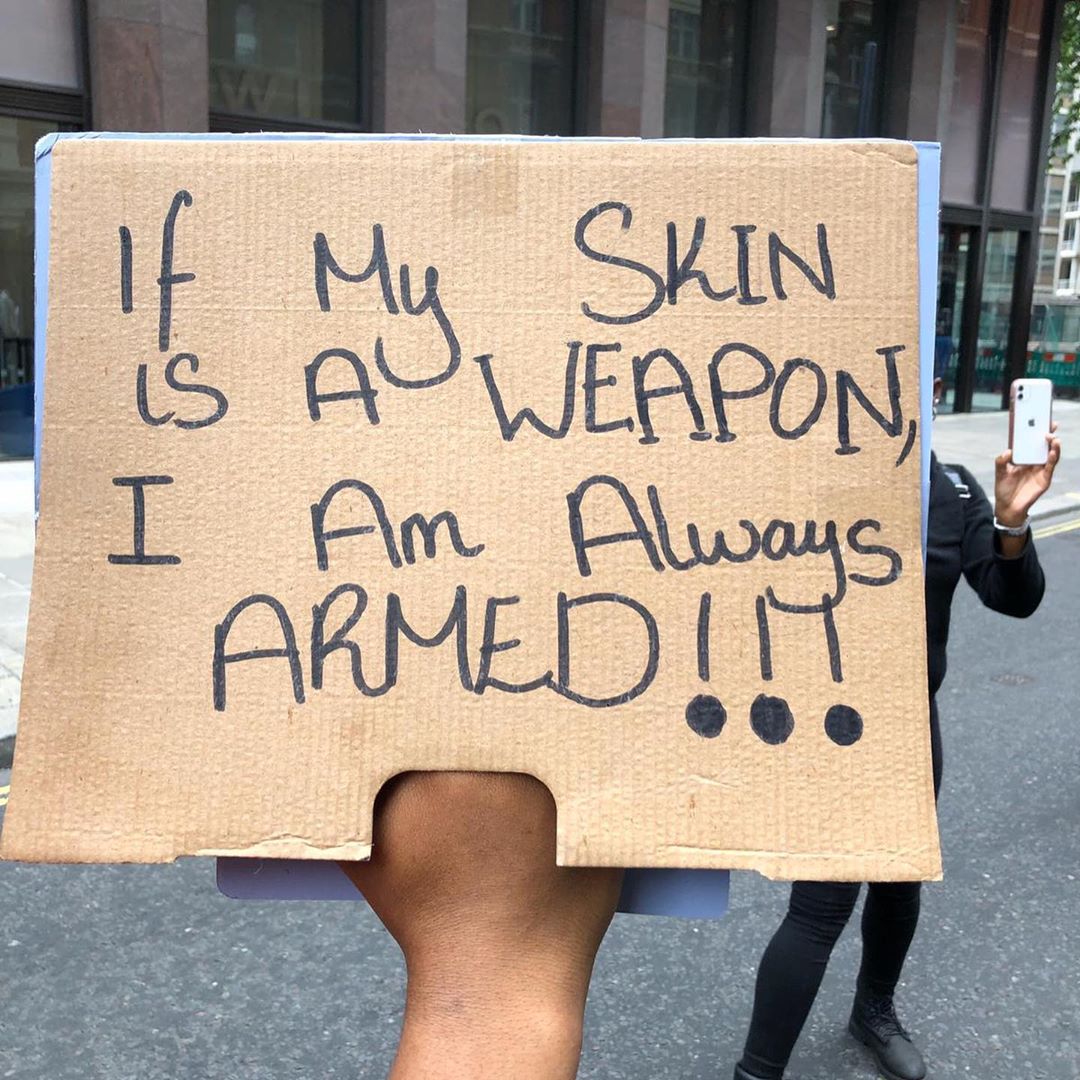 If My SKIN
is A WEAPON,
I Am Always
ARMED!!!